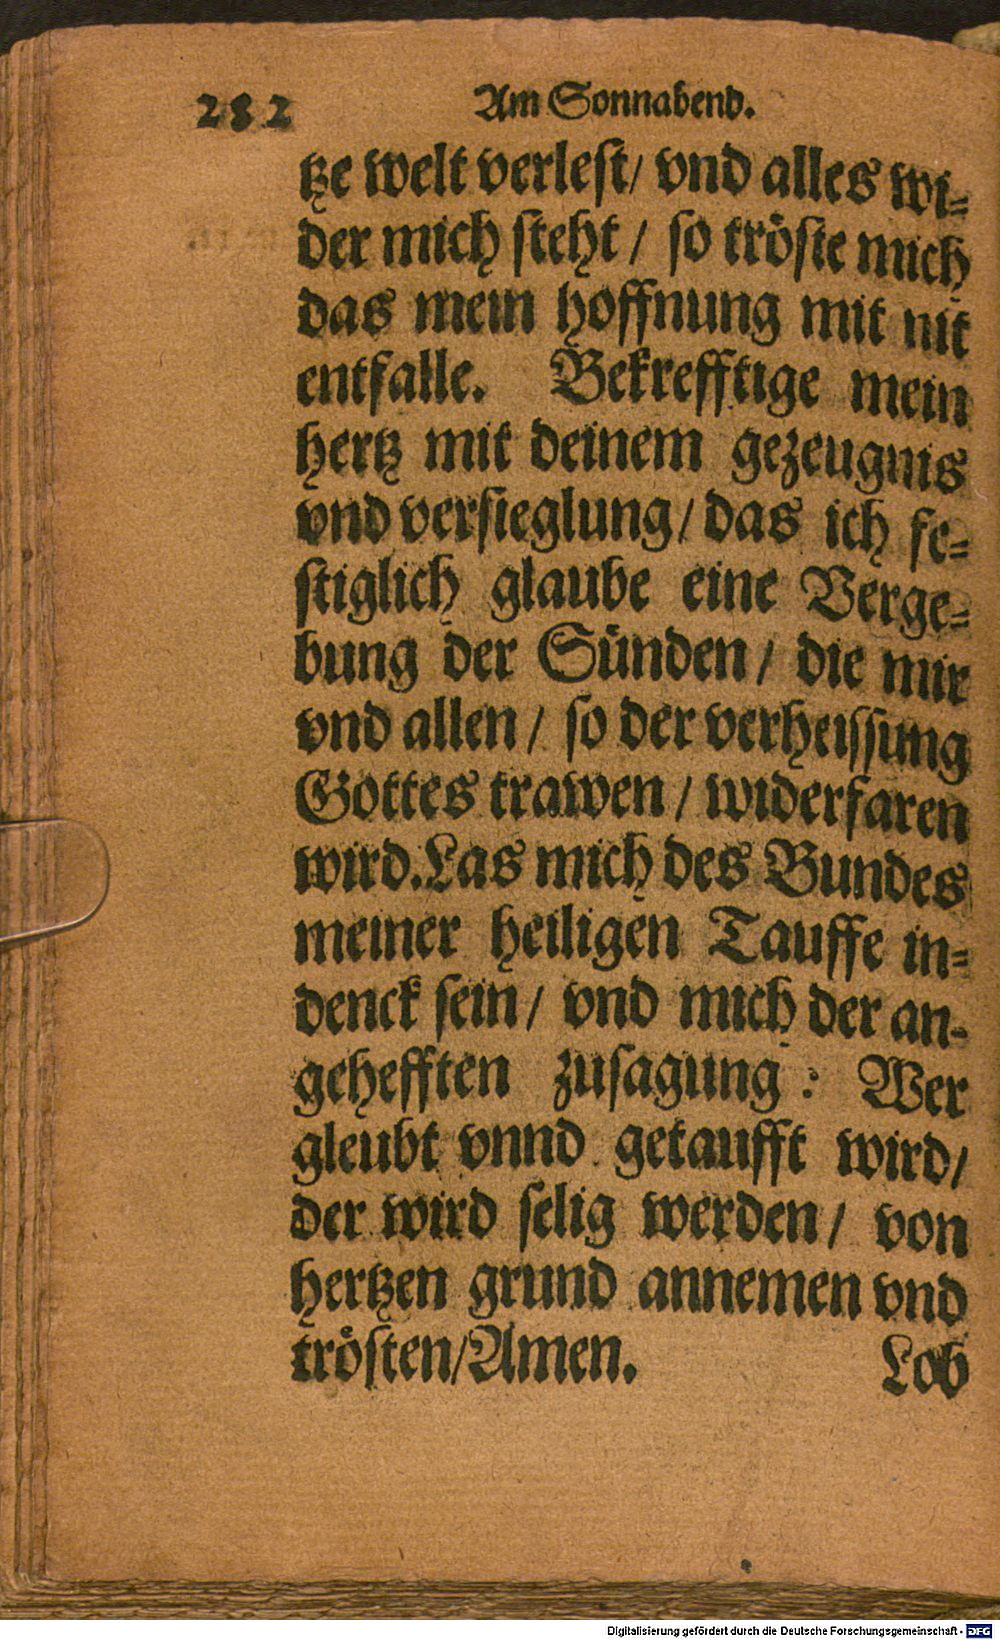 282 Am Sonnabend.
tze welt verlest/ vnd alles wi-
der mich steht/ so tröste mich
das mein hoffnung mit nit
entfalle. Bekrefftige mein
hertz mit deinem gezeugnis
vnd versieglung/ das ich fe-
stiglich glaube eine Verge-
bung der Sünden/ die mir
vnd allen/ so der verheissung
Gottes trawen/ widerfaren
wird. Las mich des Bundes
meiner heiligen Tauffe in-
denck sein/ vnd mich der an-
gehefften zusagung: Wer
gleubt vnnd getaufft wird/
der wird selig werden/ von
hertzen grund annemen vnd
trösten/ Amen. Lob
Digitalisierung gefördert durch die Deutsche Forschungsgemeinschaft - DFG